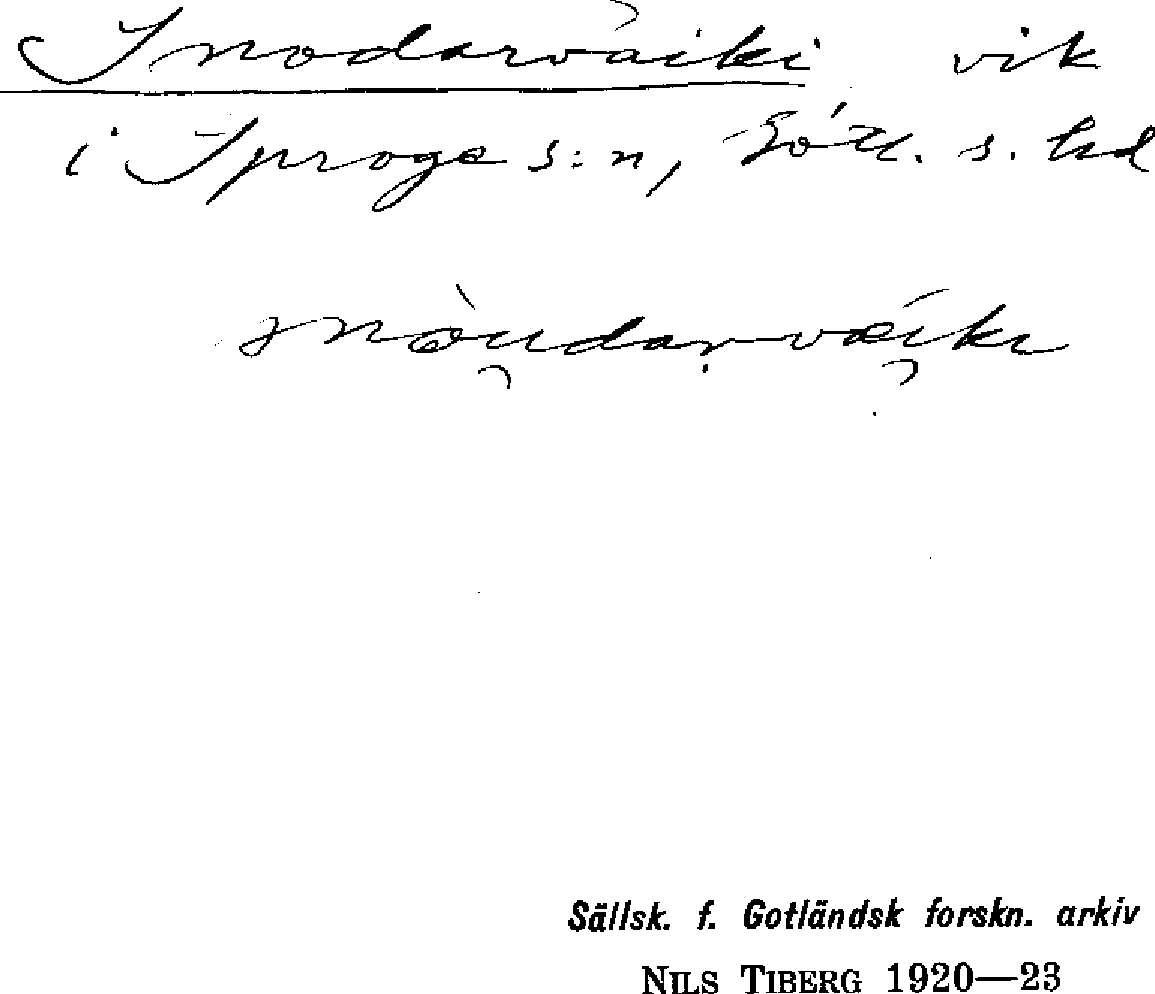 Snodarväiki vik
i Sproge s:n, Gotl. s. hd
snòudarvæ̀iki
Sällsk. f. Gotländsk forskn. arkiv
NILS TIBERG 1920—23